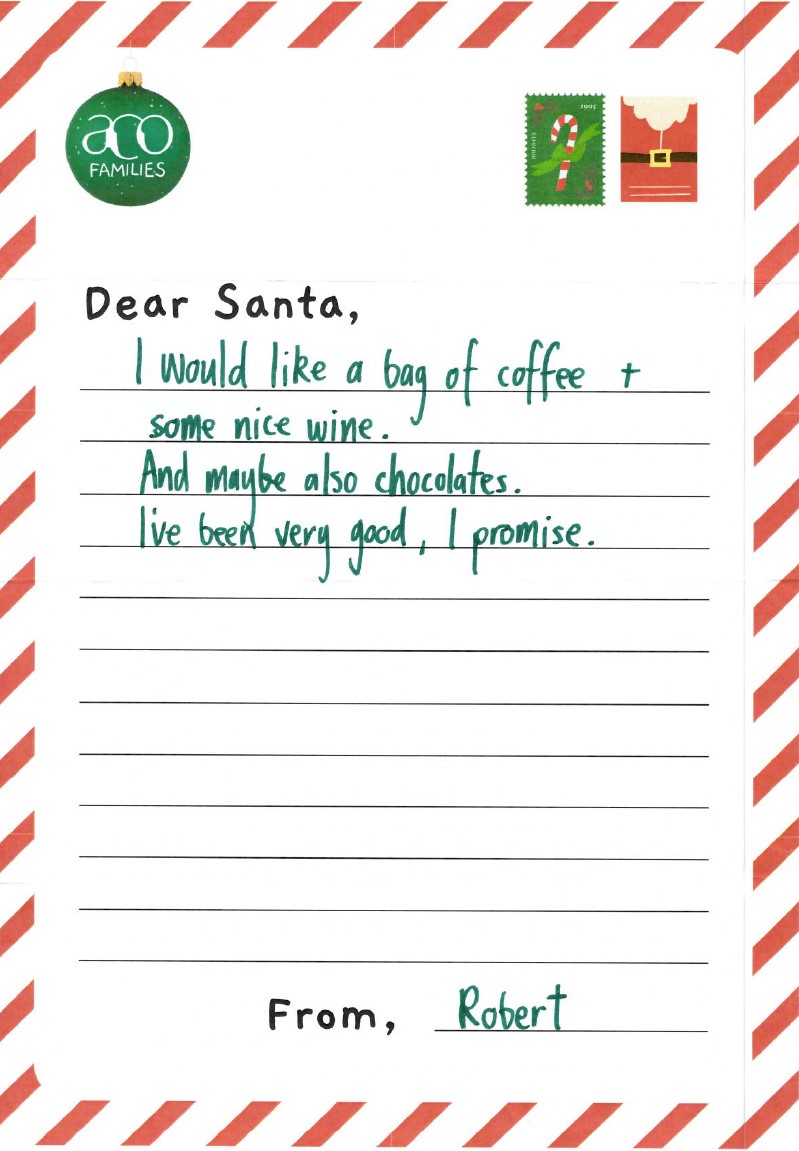 aco
FAMILIES
1905
Dear Santa,
I would like a bag of coffee +
some nice wine.
And maybe also chocolates.
I've been very good, I promise.
From, Robert